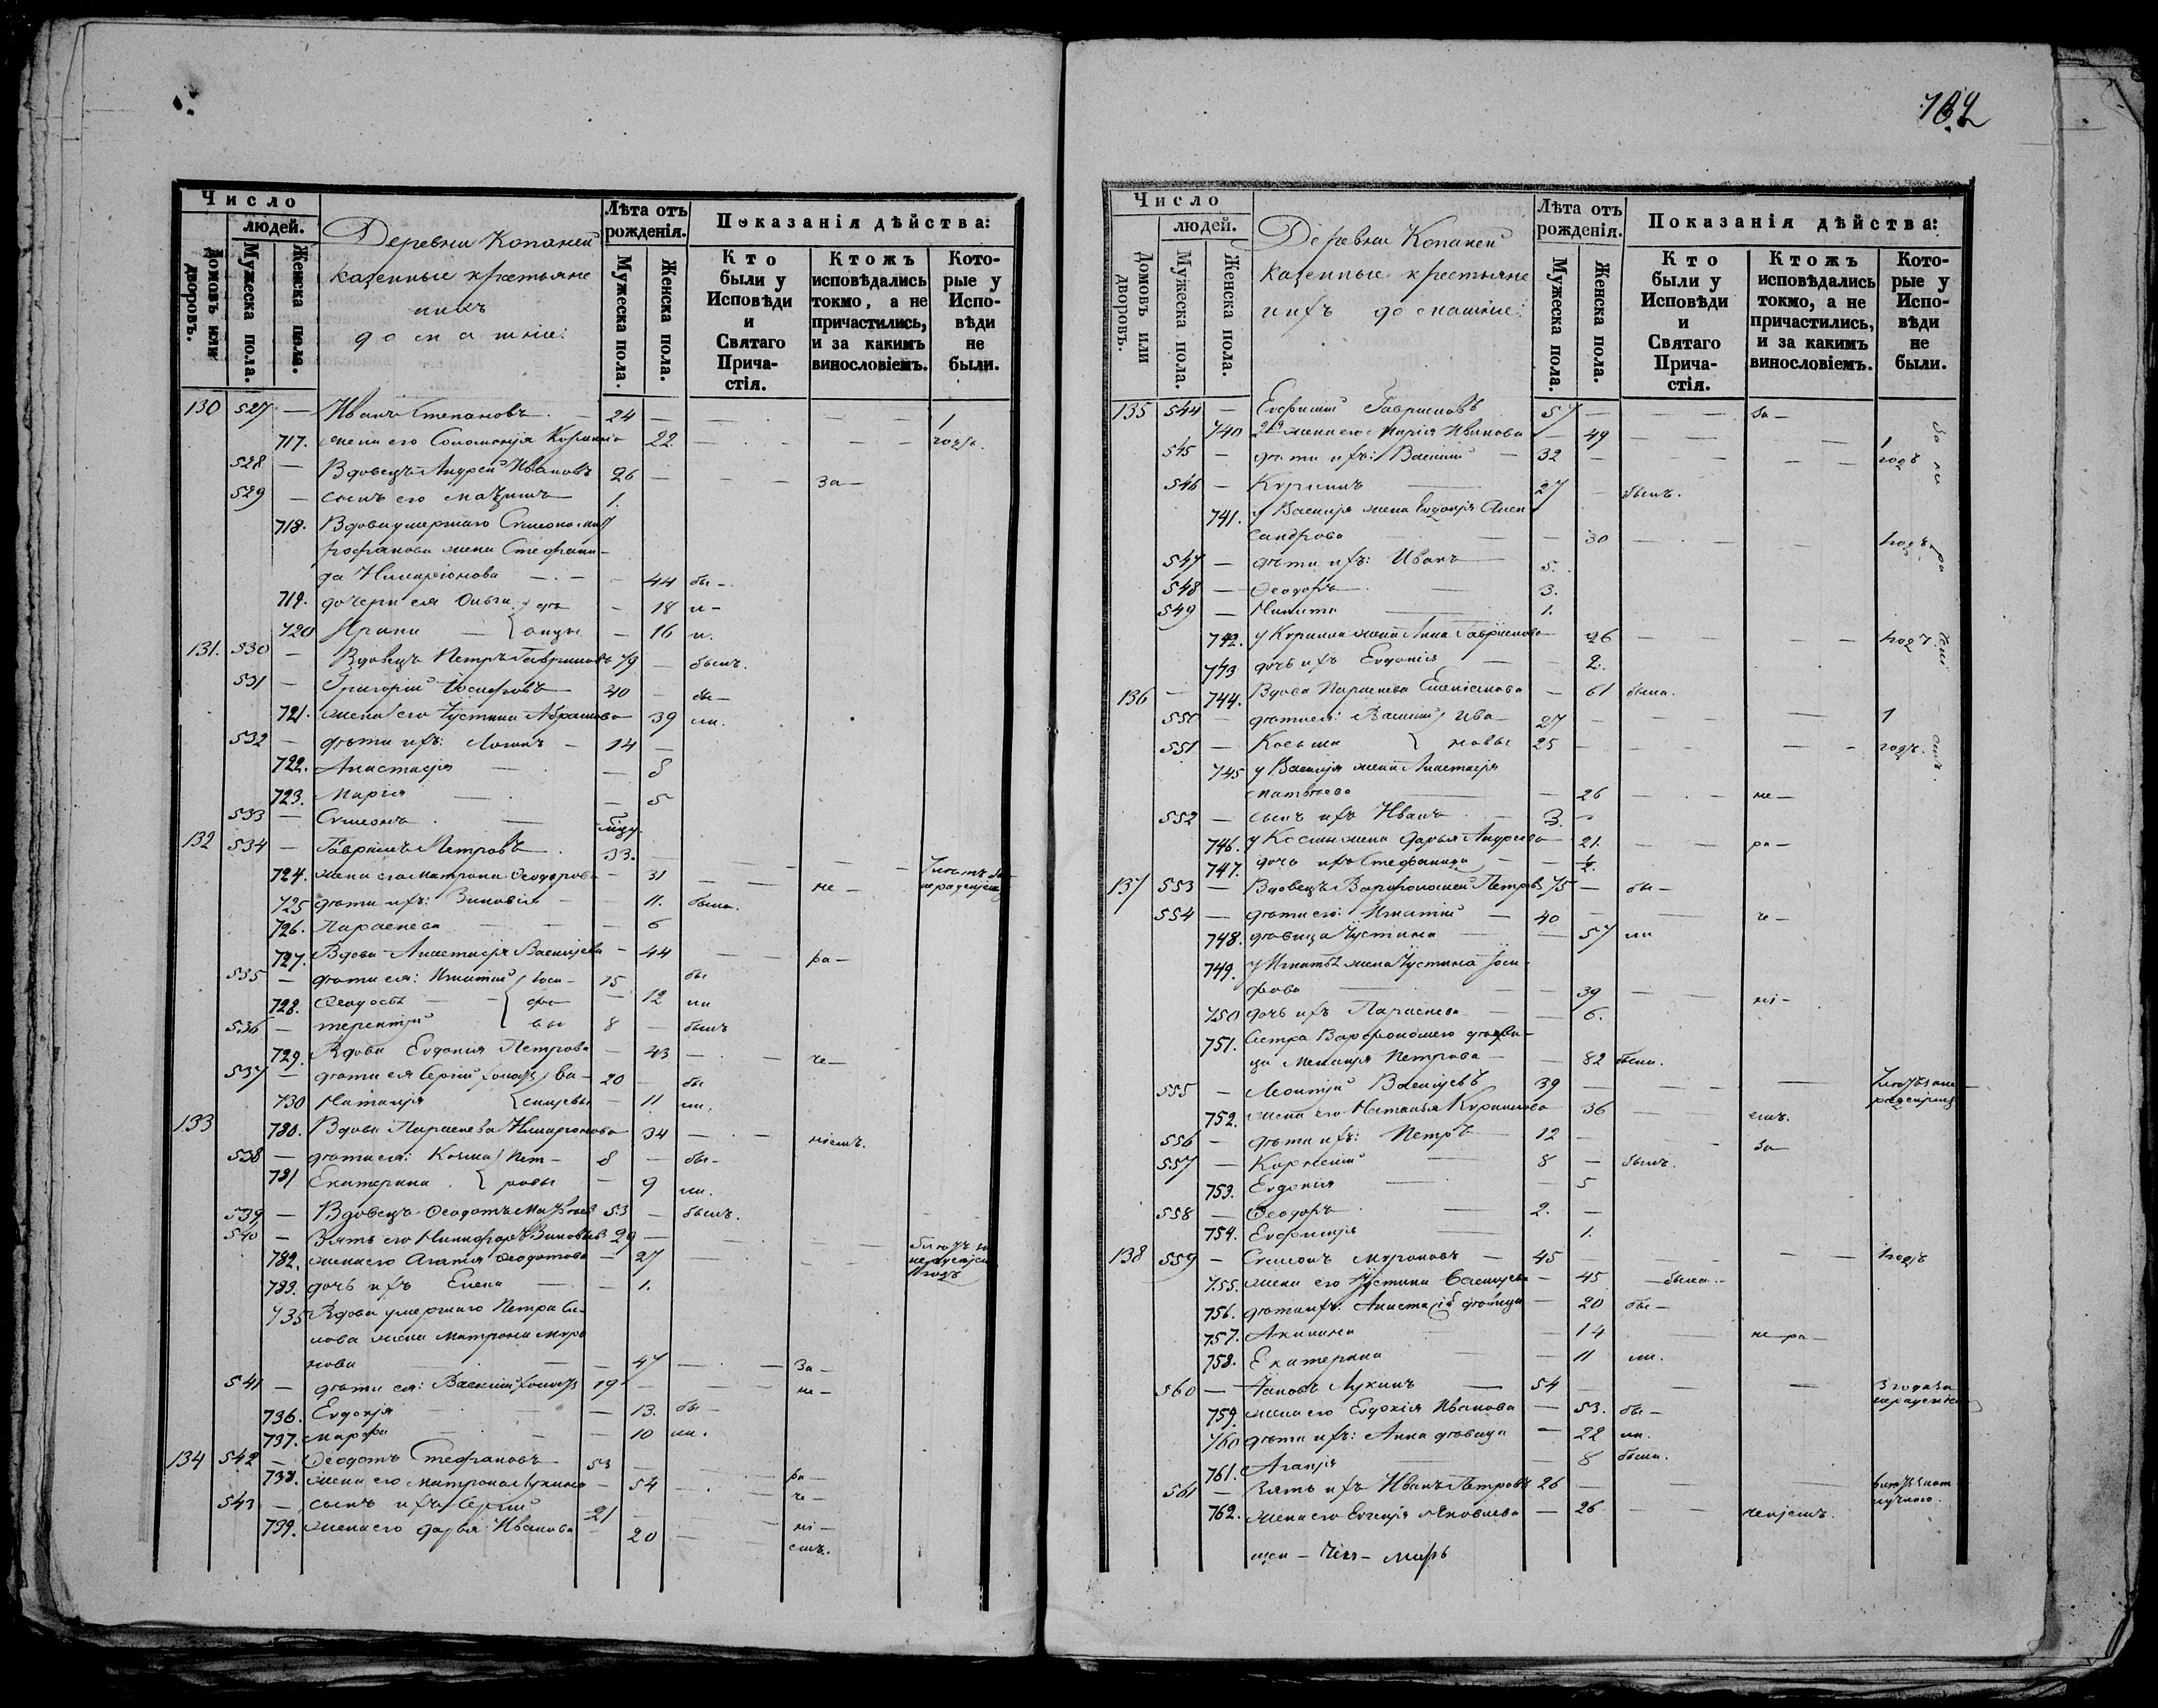 Число
людей.
Домовъ или дворовъ.
Мужеска пола.
Женска пола.
Деревни Копаней
казенные крестьяне
ихъ
домашніе:
Лѣта отъ рожденія.
Мужеска пола.
Женска пола.
Показанія дѣйства:
Кто были у Исповѣди и Святаго Причастія.
Ктожъ исповѣдались токмо, а не причастились, и за какимъ винословіемъ.
Которые у Исповѣди не были.
130 527 — Иванъ Степановъ 24 — 1
717. жена его Соломонія 22 года.
528 — Вдовецъ Андрей Ивановъ 26 — за —
529 — сынъ его 1.
718. Вдова умершаго Симеона Мит
рофанова жена Стефани-
да Иларіонова — 44 бы —
719. дочери ея Ольга — 18 —
720 Ирина — 16
131. 530 — Вдовецъ Петръ Гавриловъ 79 — былъ.
531 — Григорій Іосифовъ 40 — бы —
721. жена его Іустина Абрамова 39 ли.
532 — дѣти ихъ: Логинъ — 14 —
722. Анастасія — 8
723. Марія — 5
533 — Симеонъ
132 534 — Гавріилъ Петровъ 33. —
724. жена его Матрона Ѳеодорова — 31 не —
725 дѣти ихъ: Зиновія — 11. была.
726. Параскева — 6
727. Вдова Анастасія Васильева — 44 ра —
535 — дѣти ея: Игнатій Іоси- 15 бы
728. Ѳеодосія фо — 12 ли
536 — Терентій вы 8 — былъ
729. Вдова Евдокія Петрова — 43 — че —
537 — дѣти ея Сергій холостъ Ва- 20 — бы
730 Наталія сильевы — 11 ли.
133 780. Вдова Параскева Иларіонова 34 — ніемъ.
538 — дѣти ея: Козма Пет- 8 — бы —
731 Екатерина ровы — 9 ли.
539 — Вдовецъ Ѳеодотъ Матвѣевъ 53 — былъ.
540 — Зять его Никифоръ Зиновьевъ 29 —
782. жена его Агапія Ѳеодотова — 27
783. дочь ихъ Елена — 1.
735 Вдова умершаго Петра Си-
лова жена Матрона Миро
нова — 47 — за —
541 — дѣти ея: Василій холостъ 19 — не —
736. Евдокія — 13. бы —
737. Марфа — 10 ли.
134 542 — Ѳеодотъ Стефановъ 53 — ра —
738. жена его Матрона Лукина — 54 — че —
543 — сынъ ихъ Сергій 21 — ні —
739. жена его Дарья Иванова — 20 — емъ.
Число
людей.
Домовъ или дворовъ.
Мужеска пола.
Женска пола.
Деревни Копаней
казенные крестьяне
ихъ домашніе:
Лѣта отъ рожденія.
Мужеска пола.
Женска пола.
Показанія дѣйства:
Кто были у Исповѣди и Святаго Причастія.
Ктожъ исповѣдались токмо, а не причастились, и за какимъ винословіемъ.
Которые у Исповѣди не были.
135 544 — Евфимій Гавриловъ 57 — за —
740 жена его Марія Иванова — 49 1
545 — дѣти ихъ: Василій — 32 — годъ
546 — Кириллъ 27 — былъ.
741. у Василія жена Евдокія Алек
сандрова — 30 — годъ
547 — дѣти ихъ: Иванъ 5.
548 — Ѳеодоръ 3.
549 — Никита 1.
742. у Кирилла жена Анна Гаврилова 26 — 1 годъ.
743 дочь ихъ Евдокія — 2.
136 — 744. Вдова Параскева — 61 была.
550 — дѣти ея: Василій Ива- 27 — 1
551 — Косьма новы 25 — годъ.
745 у Василія жена Анастасія
Матвѣева — 26 — не —
552 — сынъ ихъ Иванъ — 3. —
746. у Космы жена Дарья Андреева 21. — ра —
747. дочь ихъ Стефанида — ½.
137 553 — Вдовецъ Варфоломей Петровъ 75 — бы —
554 — дѣти его: Игнатій — 40 — че —
748. дѣвица Іустина — 57 ли
749. у Игнатія жена Іустина Іоси-
фова — 39 — ні —
750 дочь ихъ Параскева — 6.
751. Сестра Варфоломея дѣви-
ца Меланія Петрова — 82 была.
555 — Леонтій Васильевъ 39 —
752. жена его Наталья Кириллова 36 — емъ.
556 — дѣти ихъ: Петръ 12 — за —
557 — Корнелій 8 — былъ.
753. Евдокія — 5
558 — Ѳеодоръ 2. —
754. Евфимія 1.
138 559 — Симеонъ Мироновъ — 45 — 1 годъ
755. жена его Іустина Васильева — 45 — была.
756. дѣти ихъ: Анастасія дѣвица — 20 бы —
757. Акилина — 14 не — ра —
758. Екатерина — 11 ли.
560 — Іаковъ Лукинъ 54 — 3 года за
нерадѣніе
759. жена его Евдокія Иванова — 53. бы —
760 дѣти ихъ: Анна дѣвица — 22 ли.
761. Агапія — 8 была.
561 — Зять ихъ Иванъ Петровъ 26 —
762. жена его Евгенія Яковлева — 26 — ченіемъ.